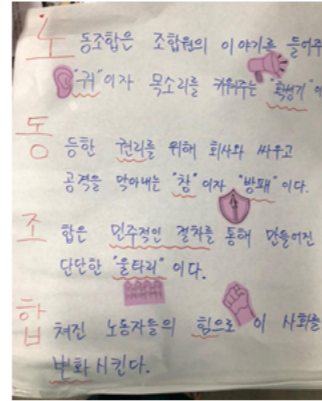 노동조합은 조합원의 이야기를 들어주
"귀"이자 목소리를 키워주는 "확성기"이
동등한 권리를 위해 회사와 싸우고
공격을 막아내는 "창"이자 "방패"이다.
조합은 민주적인 절차를 통해 만들어진
단단한 "울타리"이다.
합쳐진 노동자들의 힘으로 이 사회를
변화시킨다.